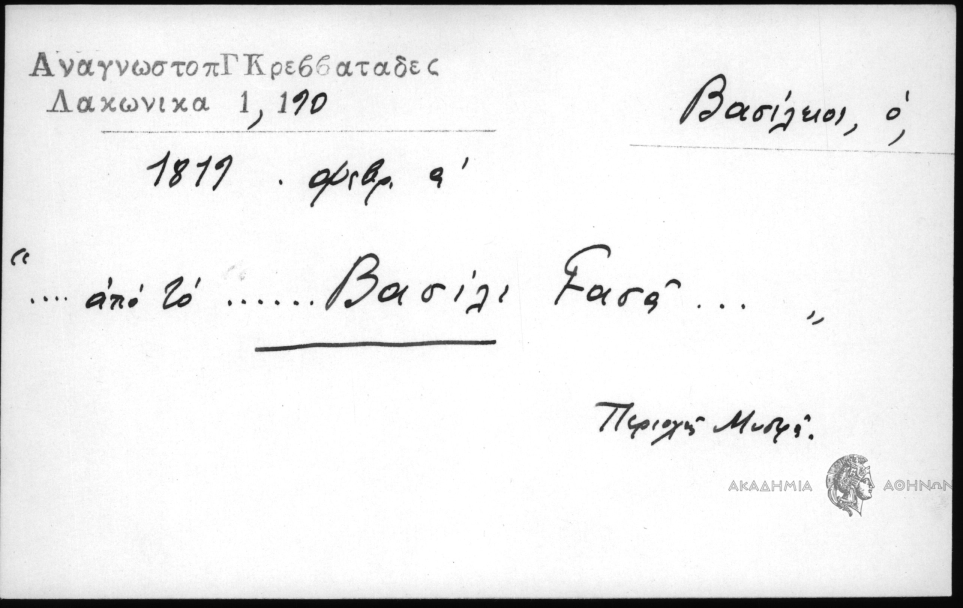 ΑναγνωστοπΓΚρεββαταδες
Λακωνικα 1,190
Βασίλειοι, ὁ,
1819 . φεβρ. α'
“.... ἀπό τό ...... Βασίλι Πασᾶ ... „
Περιοχῆς Μυστρᾶ.
ΑΚΑΔΗΜΙΑ ΑΘΗΝΩΝ